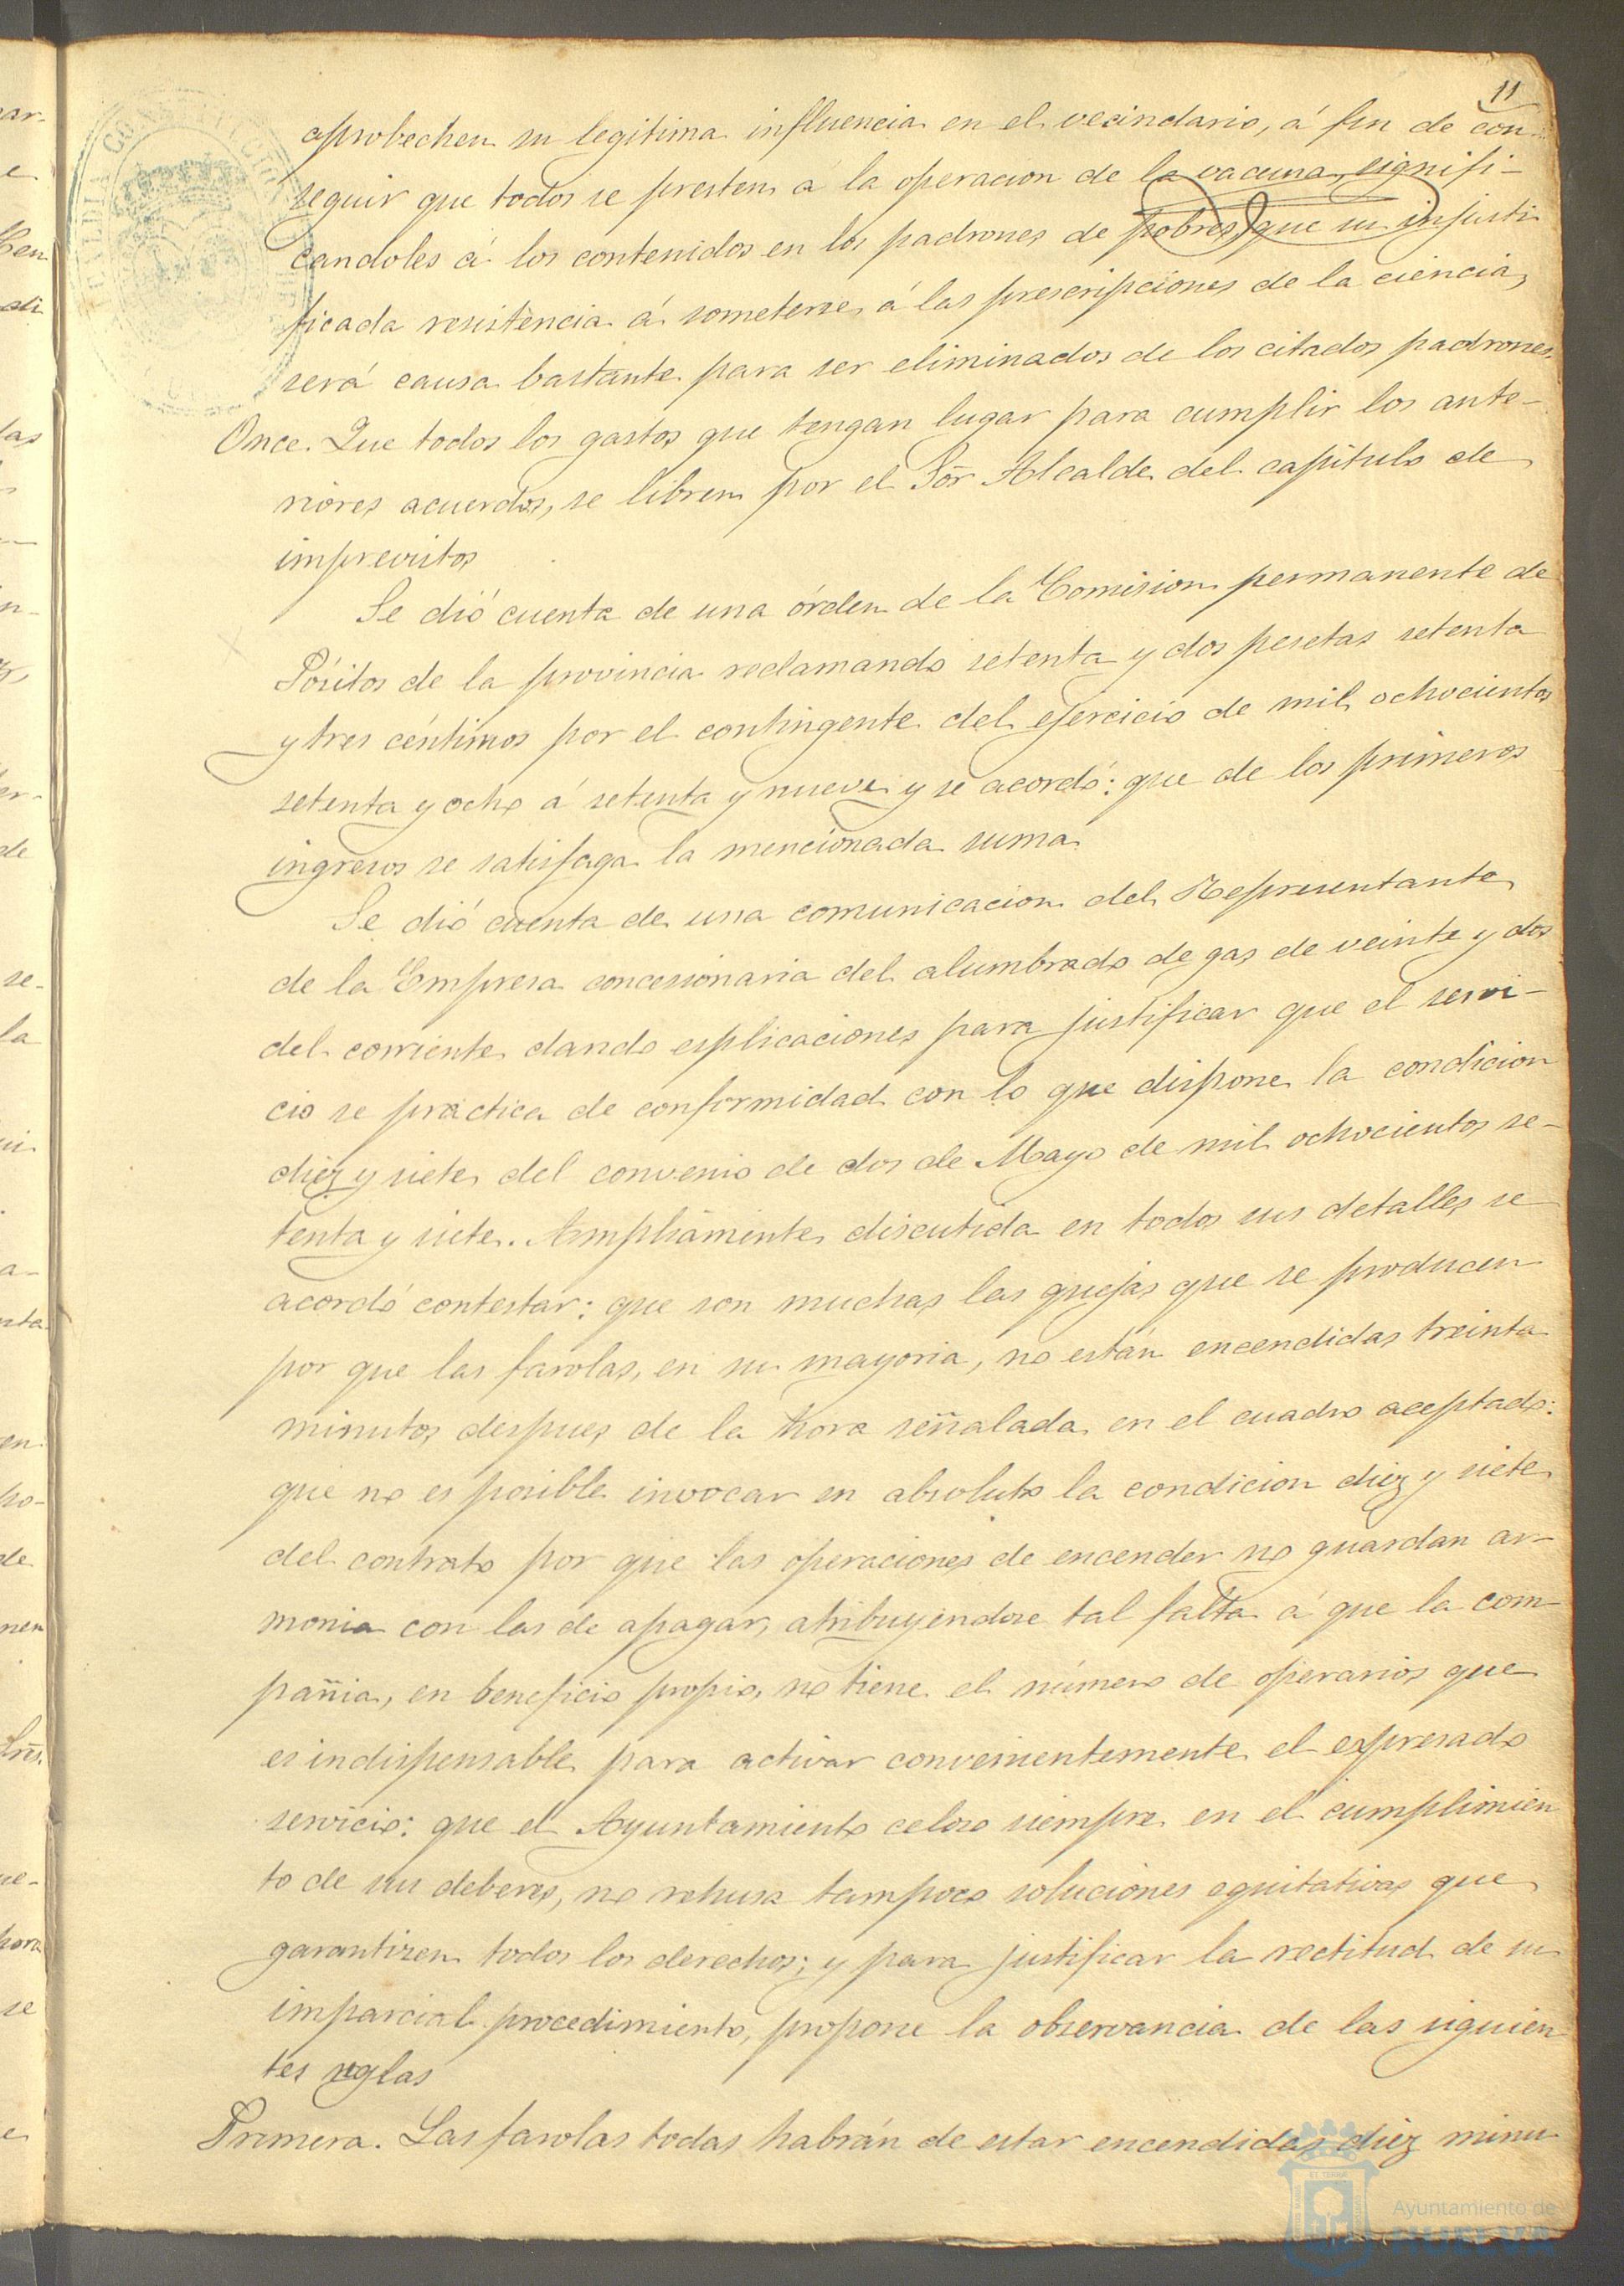 11
aprobechen su legitima influencia en el vecindario, á fin de con-
seguir que todos se presten á la operacion de la vacuna, signifi-
candoles á los contenidos en los padrones de pobres, que su injusti
ficada resistencia á someterse á las prescripciones de la ciencia,
será causa bastante para ser eliminados de los citados padrones.
Once. Que todos los gastos que tengan lugar para cumplir los ante-
riores acuerdos, se libren por el Sõr Alcalde del capitulo de
imprevistos
Se dió cuenta de una órden de la Comision permanente de
Pósitos de la provincia reclamando setenta y dos pesetas setenta
y tres céntimos por el contingente del ejercicio de mil ochocientos
setenta y ocho á setenta y nueve y se acordó: que de los primeros
ingresos se satisfaga la mencionada suma.
Se dió cuenta de una comunicacion del Representante
de la Empresa concesionaria del alumbrado de gas de veinte y dos
del corriente dando esplicaciones para justificar que el servi-
cio se practica de conformidad con lo que dispone la condicion
diez y siete del convenio de dos de Mayo de mil ochocientos se-
tenta y siete. Ampliamente discutida en todos sus detalles se
acordó contestar: que son muchas las quejas que se producen
por que las farolas, en su mayoria, no están encendidas treinta
minutos despues de la hora señalada en el cuadro aceptado:
que no es posible invocar en absoluto la condicion diez y siete
del contrato por que las operaciones de encender no guardan ar-
monia con las de apagar, atribuyendose tal falta á que la com-
pañia, en beneficio propio, no tiene el número de operarios que
es indispensable para activar convenientemente el expresado
servicio: que el Ayuntamiento celoso siempre en el cumplimien
to de sus deberes, no rehusa tampoco soluciones equitativas que
garantizen todos los derechos; y para justificar la rectitud de su
imparcial procedimiento, propone la observancia de las siguien
tes reglas
Primera. Las farolas todas habrán de estar encendidas diez minu
Ayuntamiento de
HUELVA